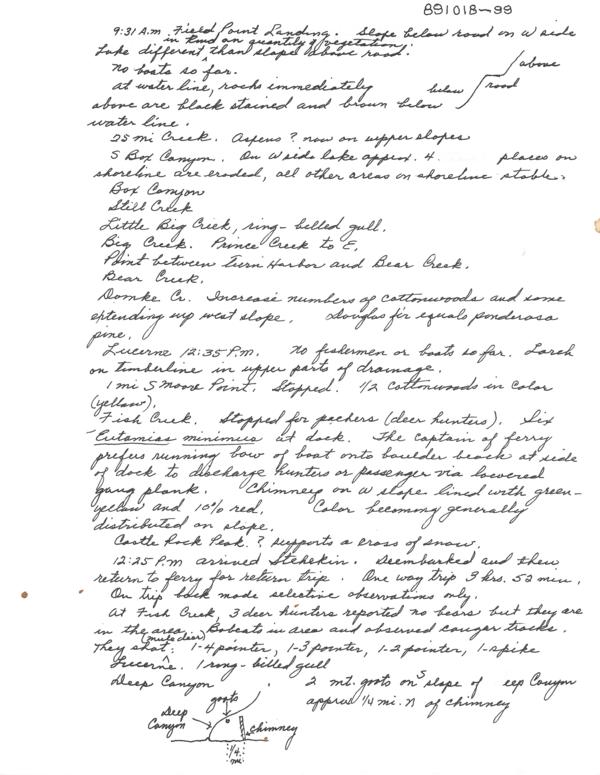 891018-99
9:31 A.M. Field Point Landing. Slope below road on W side
in kind or quantity of vegetation.
Lake different ^ than slope above road.
No boats so far.
above
At water line, rocks immediately below road
above are black stained and brown below
water line.
25 mi Creek. Aspens ? now on upper slopes
S Box Canyon. On W side lake approx. 4 places on
shoreline are eroded, all other areas on shoreline stable.
Box Canyon
Still Creek
Little Big Creek, ring-billed gull.
Big Creek. Prince Creek to E.
Point between Turn Harbor and Bear Creek.
Bear Creek.
Domke Cr. Increase numbers of cottonwoods and some
extending up west slope. Douglas fir equals ponderosa
pine.
Lucerne 12:35 P.M. No fishermen or boats so far. Larch
on timberline in upper parts of drainage.
1 mi S Moore Point. Stopped. 1/2 cottonwoods in color
(yellow).
Fish Creek. Stopped for packers (deer hunters). Six
Eutamias minimus at dock. The captain of ferry
prefers running bow of boat onto boulder beach at side
of dock to discharge hunters or passenger via lowered
gang plank. Chimney on W slope lined with green-
yellow and 10% red. Color becoming generally
distributed on slope.
Castle Rock Peak. ? supports a cross of snow.
12:25 P.M. arrived Stehekin. Deembarked and then
return to ferry for return trip. One way trip 3 hrs. 52 min.
On trip back made selective observations only.
At Fish Creek, 3 deer hunters reported no bears but they are
in the area. Bobcats in area and observed cougar tracks.
(mule deer)
They shot ^: 1-4 pointer, 1-3 pointer, 1-2 pointer, 1-spike
Lucerne. 1 ring-billed gull
Deep Canyon 2 mt. goats on S slope of eep Canyon
approx 1/4 mi. N of chimney
goats
Deep
Canyon
chimney
1/4
mi